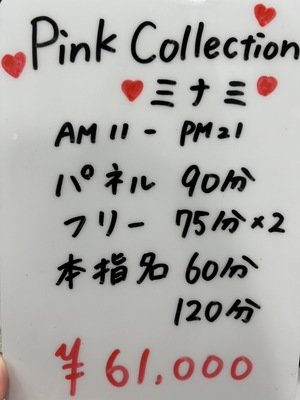 Pink Collection
ミナミ
AM11 - PM21
パネル 90分
フリー 75分×2
本指名 60分
120分
¥61,000